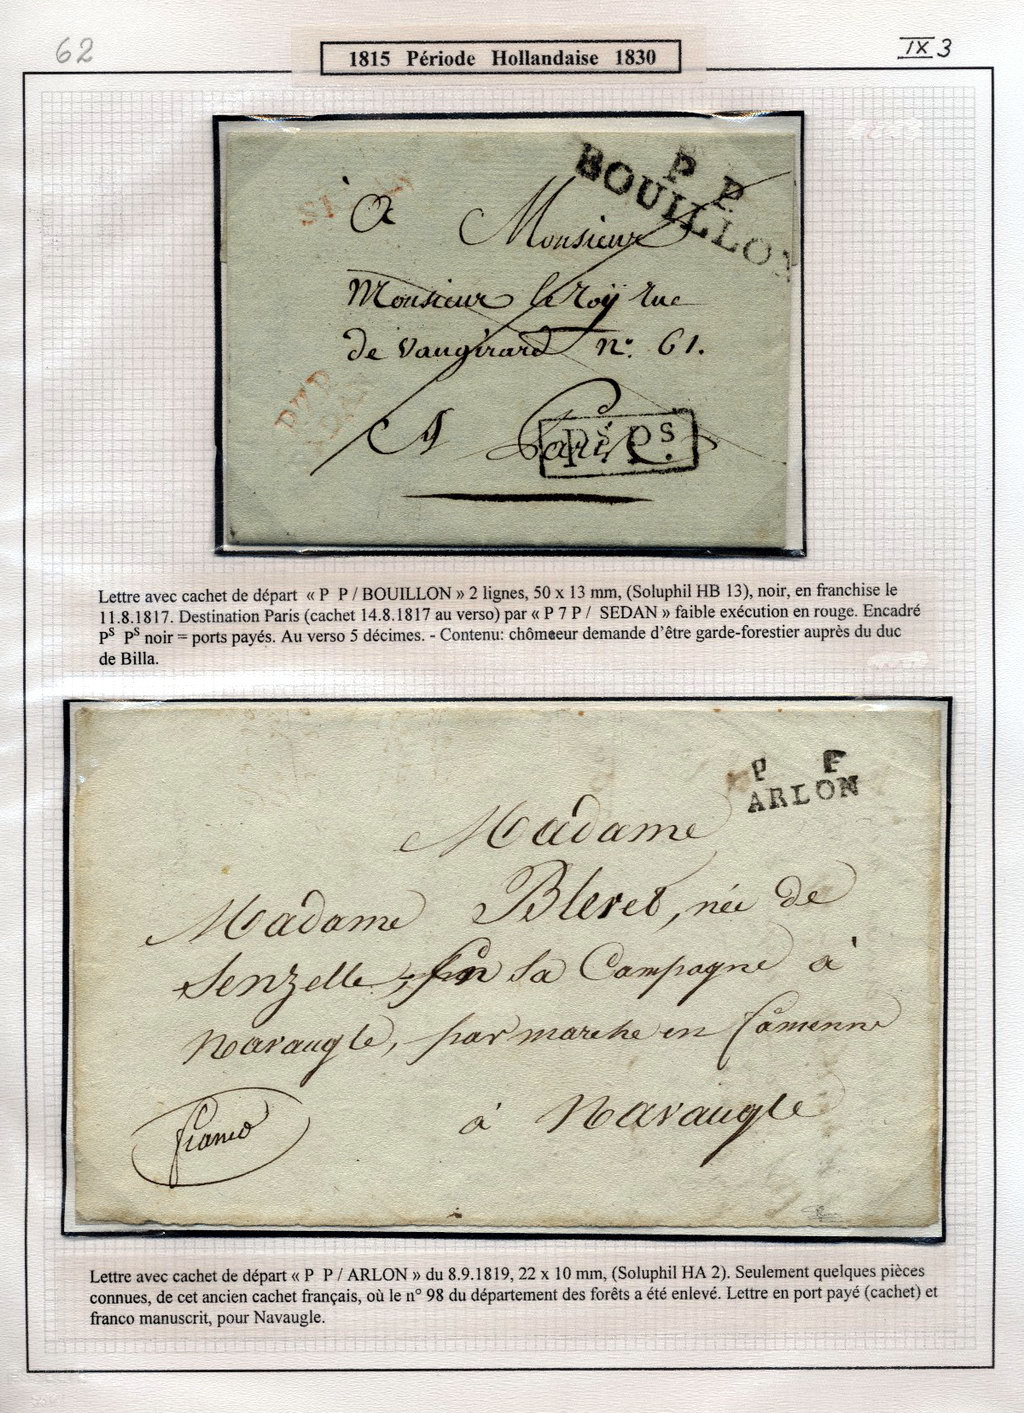 62
IX 3
1815 Période Hollandaise 1830
P P
BOUILLON
à Monsieur
Monsieur le Roÿ rue
de Vaugirard n° 61.
A Paris
Ps. Ps.
P7P
Lettre avec cachet de départ « P P / BOUILLON » 2 lignes, 50 x 13 mm, (Soluphil HB 13), noir, en franchise le
11.8.1817. Destination Paris (cachet 14.8.1817 au verso) par « P 7 P / SEDAN » faible exécution en rouge. Encadré
Ps Ps noir = ports payés. Au verso 5 décimes. - Contenu: chômeeur demande d'être garde-forestier auprès du duc
de Billa.
P P
ARLON
Madame
Madame Bleret, née de
Senzelle, en sa Campagne à
Navaugle, par marche en famenne
à Navaugle
franco
Lettre avec cachet de départ « P P / ARLON » du 8.9.1819, 22 x 10 mm, (Soluphil HA 2). Seulement quelques pièces
connues, de cet ancien cachet français, où le n° 98 du département des forêts a été enlevé. Lettre en port payé (cachet) et
franco manuscrit, pour Navaugle.